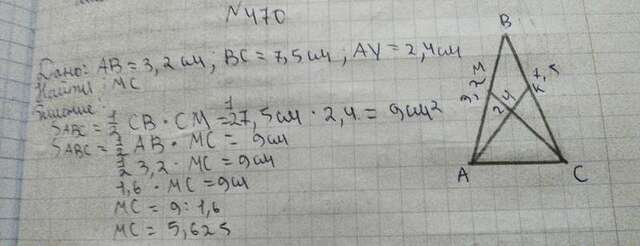 N470
Дано: AB = 3,2 см; BC = 7,5 см; AY = 2,4 см
Найти: MC
Решение:
S ABC = 1/2 CB · CM = 1/2 7,5 см · 2,4 = 9 см²
S ABC = 1/2 AB · MC = 9 см
1/2 3,2 · MC = 9 см
1,6 · MC = 9 см
MC = 9 : 1,6
MC = 5,625
B
M
7,5
K
3,2
2,4
A
C